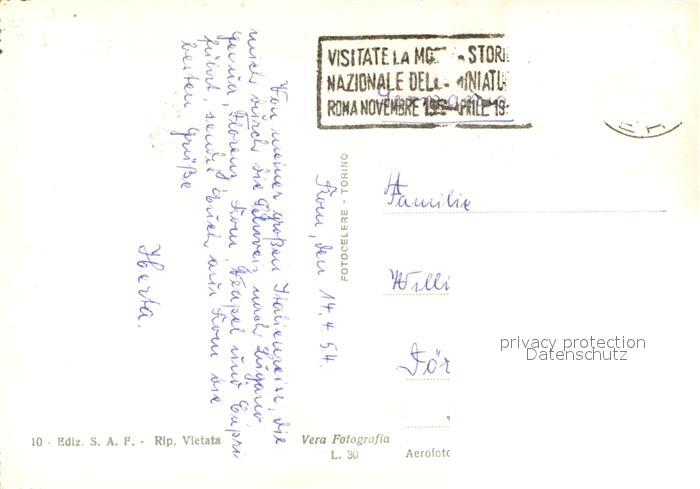 VISITATE LA MO STOR
NAZIONALE DELL MINIATU
ROMA NOVEMBRE 195 APRILE 19
FOTOCELERE - TORINO
Rom, den 14.4.54.
Von meiner großen Italienreise, die
mich durch die Schweiz nach Lugano
Genua, Florenz, Rom, Neapel und Capri
führt, sendet Euch aus Rom die
besten Grüße
Herta.
Familie
Willi
privacy protection
Datenschutz
10 - Ediz. S. A. F. - Rip. Vietata
Vera Fotografia
L. 30
Aerofoto